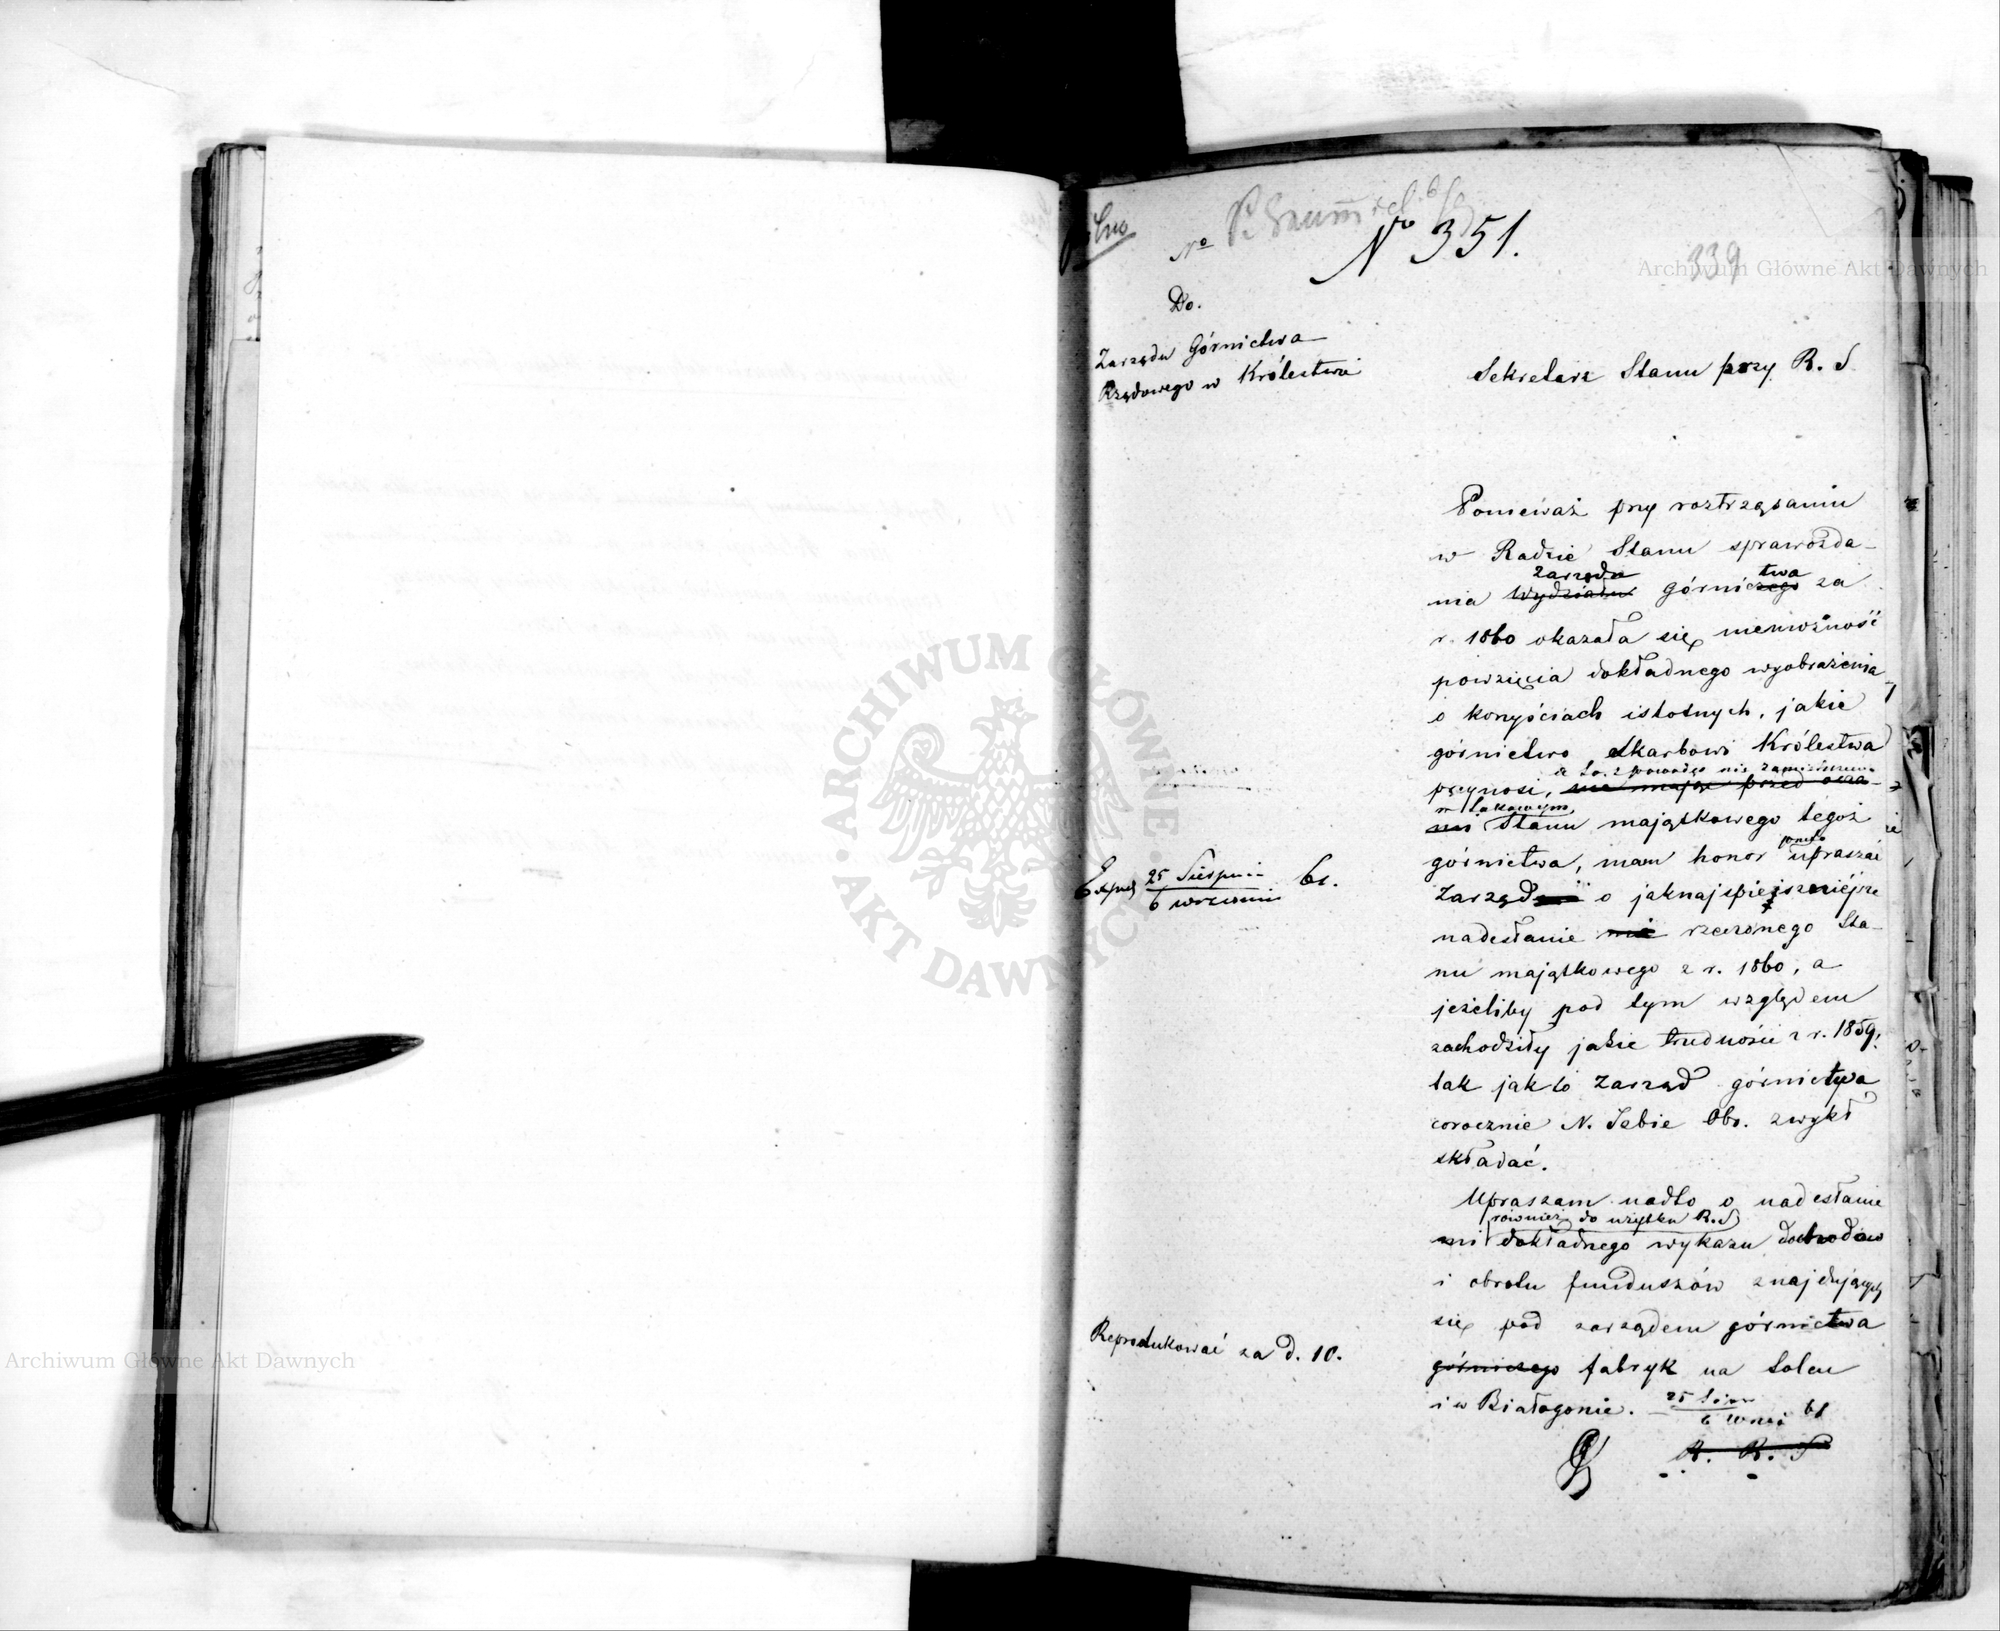 Pilno
No
No 351.
339
Do.
Zarządu Górnictwa
Rządowego w Królestwie
Sekretarz Stanu przy R. S.
Ponieważ przy roztrząsaniu
w Radzie Stanu sprawozda-
nia Wydziału Zarządu Górniczego twa za
r. 1860 okazała się niemożność
powzięcia dokładnego wyobrażenia
o korzyściach istotnych, jakie
górnictwo Skarbowi Królestwa
przynosi, nie mając przed ocza-
a to z powodu nie zamieszczenia
mi w takowym Stanu majątkowego tegoż
górnictwa, mam honor upraszać
Zarząd o jaknajspieszniejsze
nadesłanie mi rzeczonego Sta-
nu majątkowego z r. 1860, a
jeżeliby pod tym względem
zachodziły jakie trudności z r. 1859,
tak jak to Zarząd górnictwa
corocznie N. Izbie Obr. zwykł
składać.
Upraszam nadto o nadesłanie
również do użytku R. S
mi dokładnego wykazu dochodów
i obrotu funduszów znajdujących
się pod zarządem górnictwa
górniczego fabryk na Solcu
i w Białogonie. 25 Sier 6 Wrześ 61
R. R. S
Exped 25 Sierpnia 6 września 61.
Reprodukować za d. 10.
ARCHIWUM GŁÓWNE AKT DAWNYCH
Archiwum Główne Akt Dawnych
Archiwum Główne Akt Dawnych